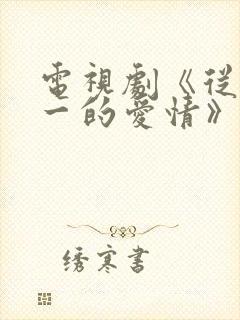 電視劇《從
一的愛情》
绣寒書